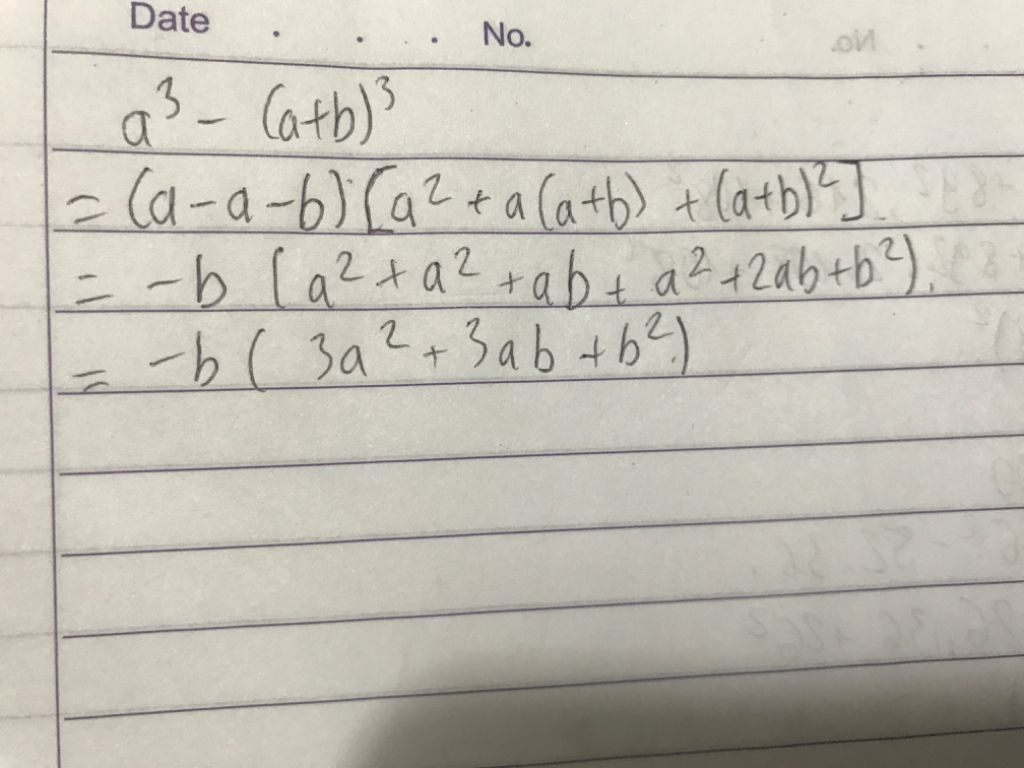 Date . . . No.
a³ - (a+b)³
= (a-a-b)[a² + a(a+b) + (a+b)²]
= -b (a² + a² + ab + a² + 2ab + b²).
= -b ( 3a² + 3ab + b².)